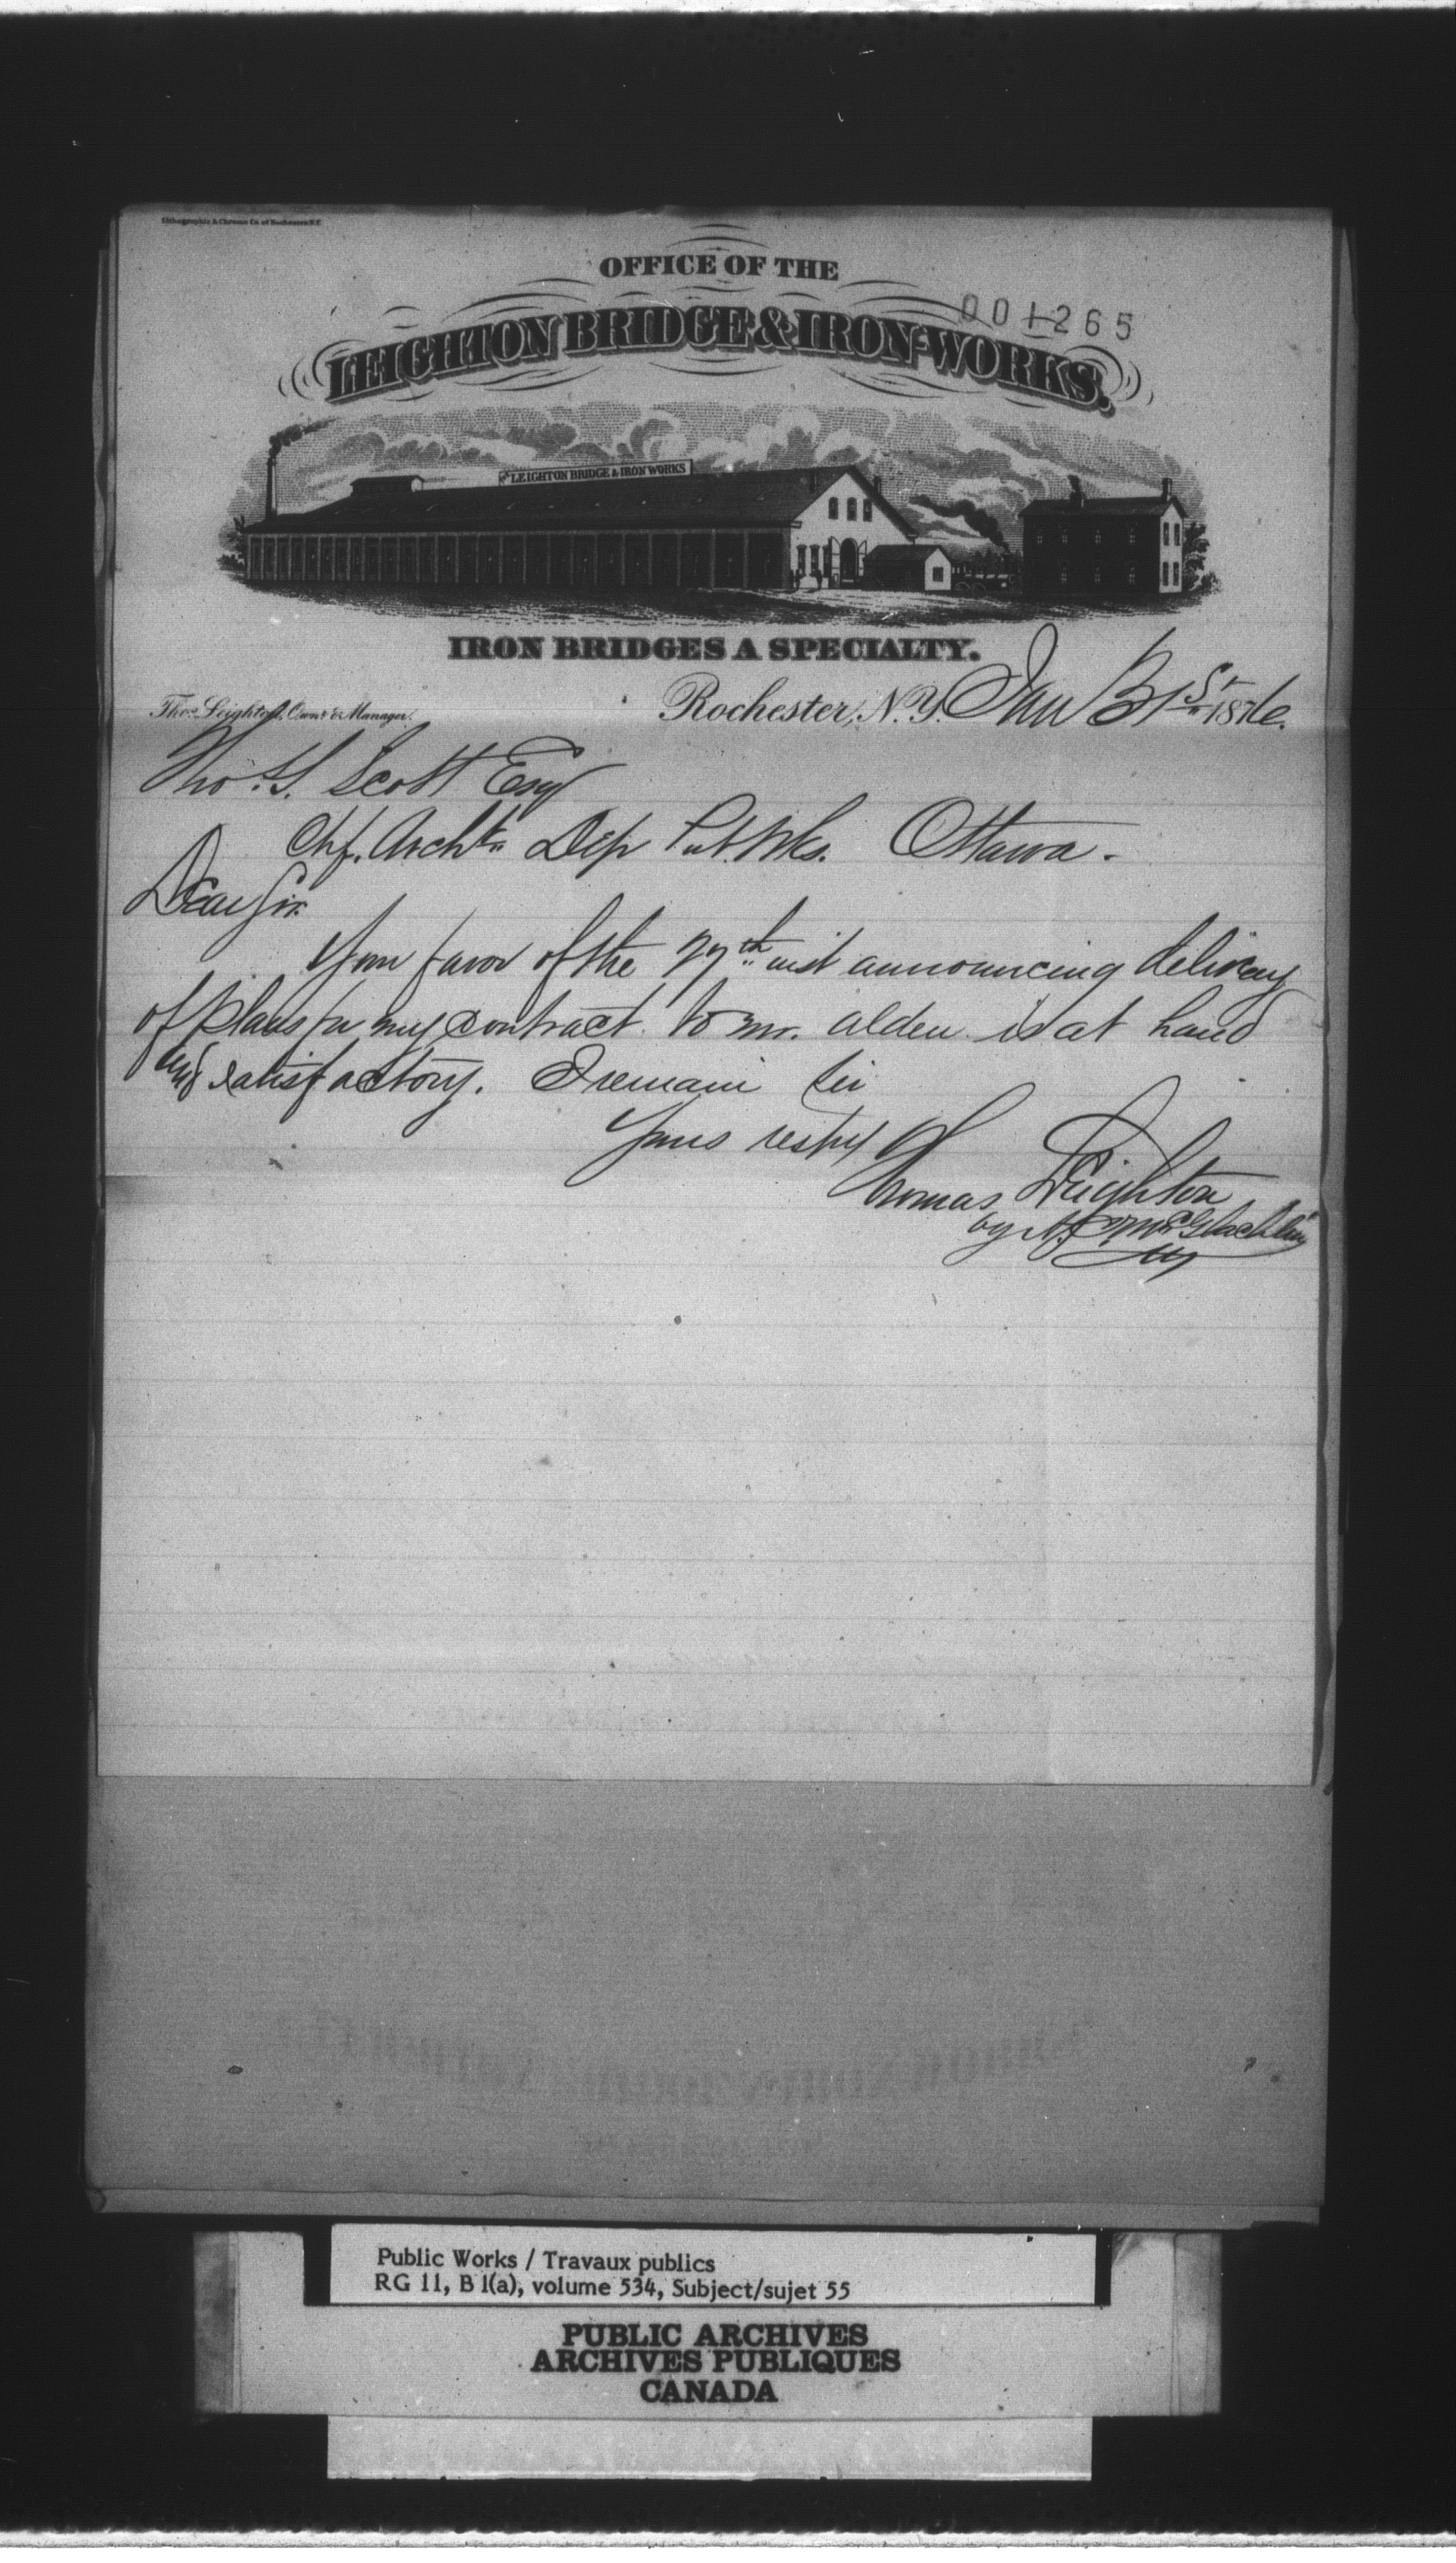 Lithographic & Chromo Co. of Rochester N.Y.
OFFICE OF THE
001265
LEIGHTON BRIDGE & IRON-WORKS.
LEIGHTON BRIDGE & IRON WORKS
IRON BRIDGES A SPECIALTY.
Thos. Leighton, Ownr. & Manager.
Rochester, N.Y. Jan 31st 1876.
Tho. S. Scott Esq
Chf. Archt. Dep Pub. Wks. Ottawa.
Dear Sir
Your favor of the 27th inst announcing delivery
of plans for my contract to Mr. Alden is at hand
and satisfactory. I remain Sir
Yours respy
Thomas Leighton
by McGlachlin
Public Works / Travaux publics
RG 11, B 1(a), volume 534, Subject/sujet 55
PUBLIC ARCHIVES
ARCHIVES PUBLIQUES
CANADA